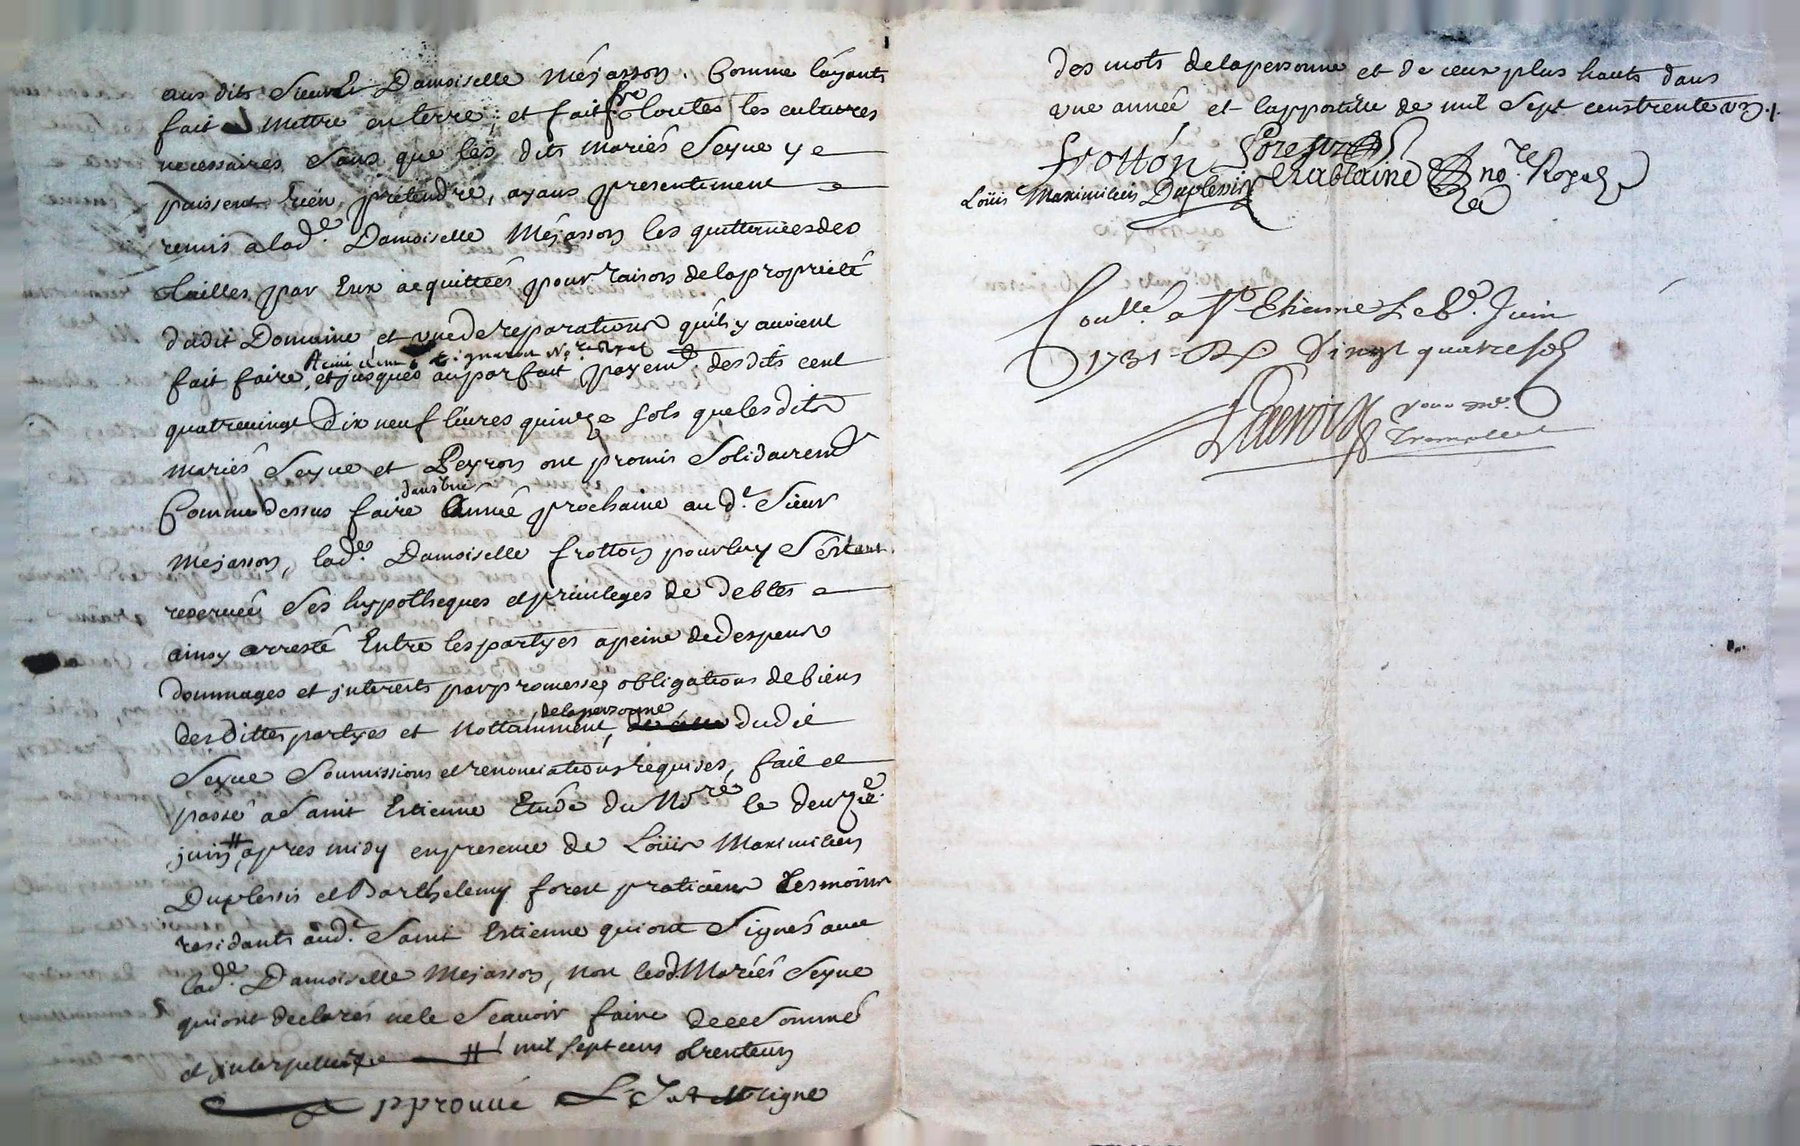 aus dits Sieur et Damoiselle Mejasson. Comme layants
fait mettre en terre, et fait fre toutes les cultures
necessaires sans que les dits mariés Seyue y
puissent rien prétendre, ayans presentement
remis a lad.e Damoiselle Mejasson les quittances des
tailles par Eux acquittées pour raison de la proprieté
dudit Domaine et vue de reparations quils y avoient
fait faire, et jusques au parfait payemt. desdits cent
quatrevingt Dix neuf livres quinze sols que lesdits
mariés Seyue et Peyron ont promis Solidairemt
Comme dessus faire
dans une
Année prochaine au d.t Sieur
Mejasson, lad.e Damoiselle frotton pour luy S'estant
reservée Ses hypotheques et privileges de debtes
ainsy arresté Entre les partyes a peine de despens
dommages et interests par promesses obligations de biens
desdittes partyes et Nottamment,
de la personne
dudit
Seyue Soumissions et renonciations requises, fait et
passé a Saint Estienne Etude du No.re le deuz.e
juin # apres midy en presence de Loüis Maximilien
Duplessis et Barthelemy forest praticiens tesmoins
residants aud.t Saint Estienne qui ont Signés avec
lad.e Damoiselle Mejasson, non lesd. Mariés Seyue
qui ont declarés ne le Scavoir faire de ce Sommés
et interpellés # mil sept cens trente un
pprouvé ligne
des mots de la personne et de ceux plus hauts dans
une année et lappostille de mil Sept cens trente un ./.
frottón Forest
Loüis Maximilien Duplessis Chablaine no.re Royal
Conllé. a St. Etienne Le 8e. Juin
1731 Vingt quatre sols